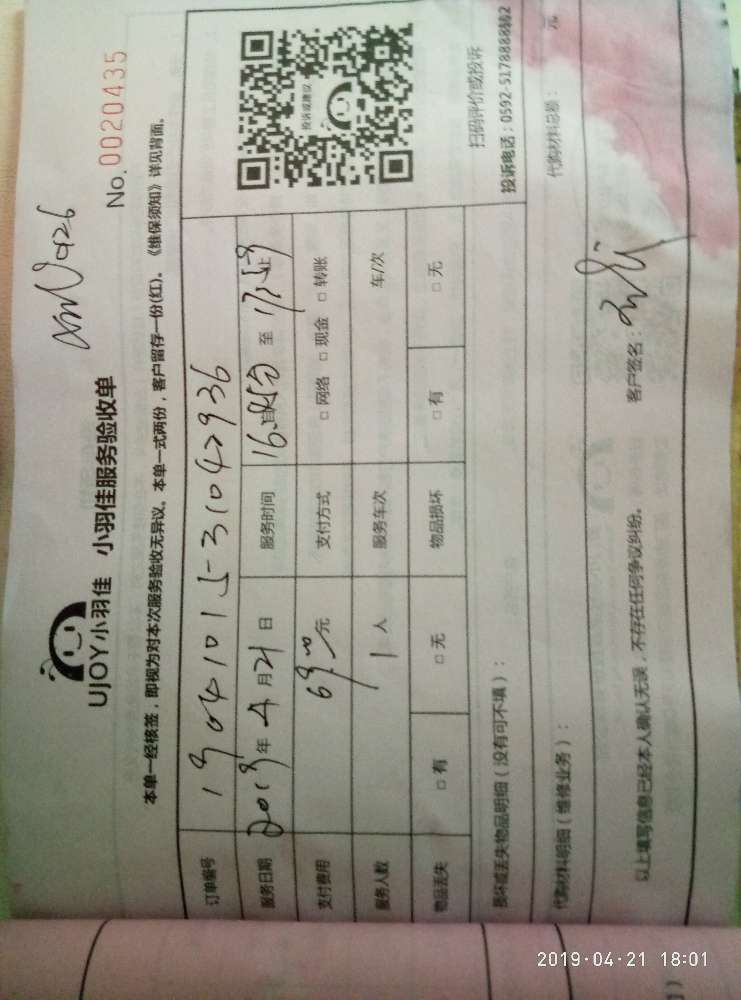 UJOY小羽佳 小羽佳服务验收单
No. 0020435
本单一经核签，即视为对本次服务验收无异议。本单一式两份，客户留存一份(红)。《维保须知》详见背面。
订单编号
服务日期 2019年 4月21日 服务时间 至 17:59止
支付费用 元 支付方式 □ 网络 □ 现金 □ 转账
服务人数 1 人 服务车次 车/次
物品丢失 □ 有 □ 无 物品损坏 □ 有 □ 无
投诉或建议
扫码评价或投诉
损坏或丢失物品明细（没有可不填）：
代购材料明细（维修业务）： 代购材料总额： 元
以上填写信息已经本人确认无误，不存在任何争议纠纷。 客户签名：
2019·04·21 18:01